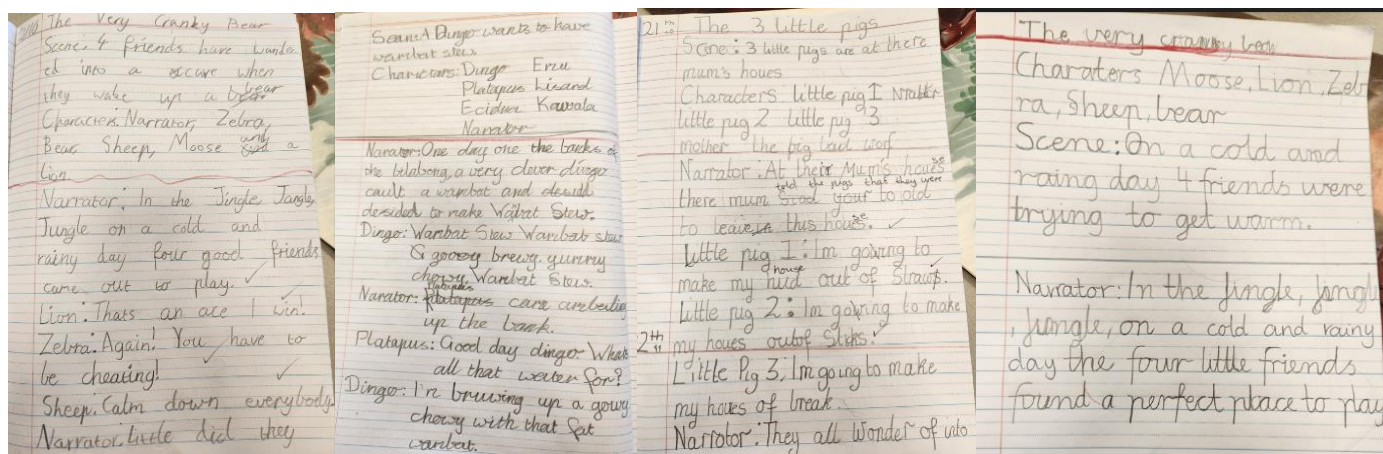 The Very Cranky Bear
Scene: 4 friends have wande
ed into a when
they wake up a bear
Character: Narrator, Zebra,
Bear Sheep, Moose and a
Lion
Narrator: In the Jingle Jangle
Jungle on a cold and
rainy day four good friends
came out to play.
Lion: Thats an ace I win!
Zebra: Again! You have to
be cheating!
Sheep: Calm down everybody
Narrator: Little did they
Scene: A Dingo wants to have
wambat stew
Charactars: Dingo Emu
Platapus Lizard
Ecidna Kawala
Narrator
Narator: One day one the banks o
the bilabong, a very clever dingo
cault a wambat and
desided to make Wambat Stew.
Dingo: Wambat Stew Wambat stew
gooey brewy yummy
chewy, Wambat Stew.
Narator: Platapus came
up the bank.
Platapus: Good day dingo What
all that water for?
Dingo: I'm up a gowy
chowy with that fat
wambat.
21th The 3 little pigs
Scene: 3 little pigs are at there
mum's houes
Characters little pig 1
little pig 2 little pig 3
mother the big bad worf
Narrator: At their Mum's
there mum told the pugs that they were to old
to leave this
Little pig 1: Im going to
make my house out of Straws.
Little pig 2: Im going to make
2th my houes outof Sticks.
Little Pig 3: Im going to make
my houes of break.
Narrotor: They all Wonder of into
The very cranky bear
Charaters Moose, Lion, Zeb
ra, Sheep, bear
Scene: On a cold and
raing day 4 friends were
trying to get warm.
Narrator: In the Jingle, jangle
, Jungle, on a cold and rainy
day the four little friends
found a perfect place to play